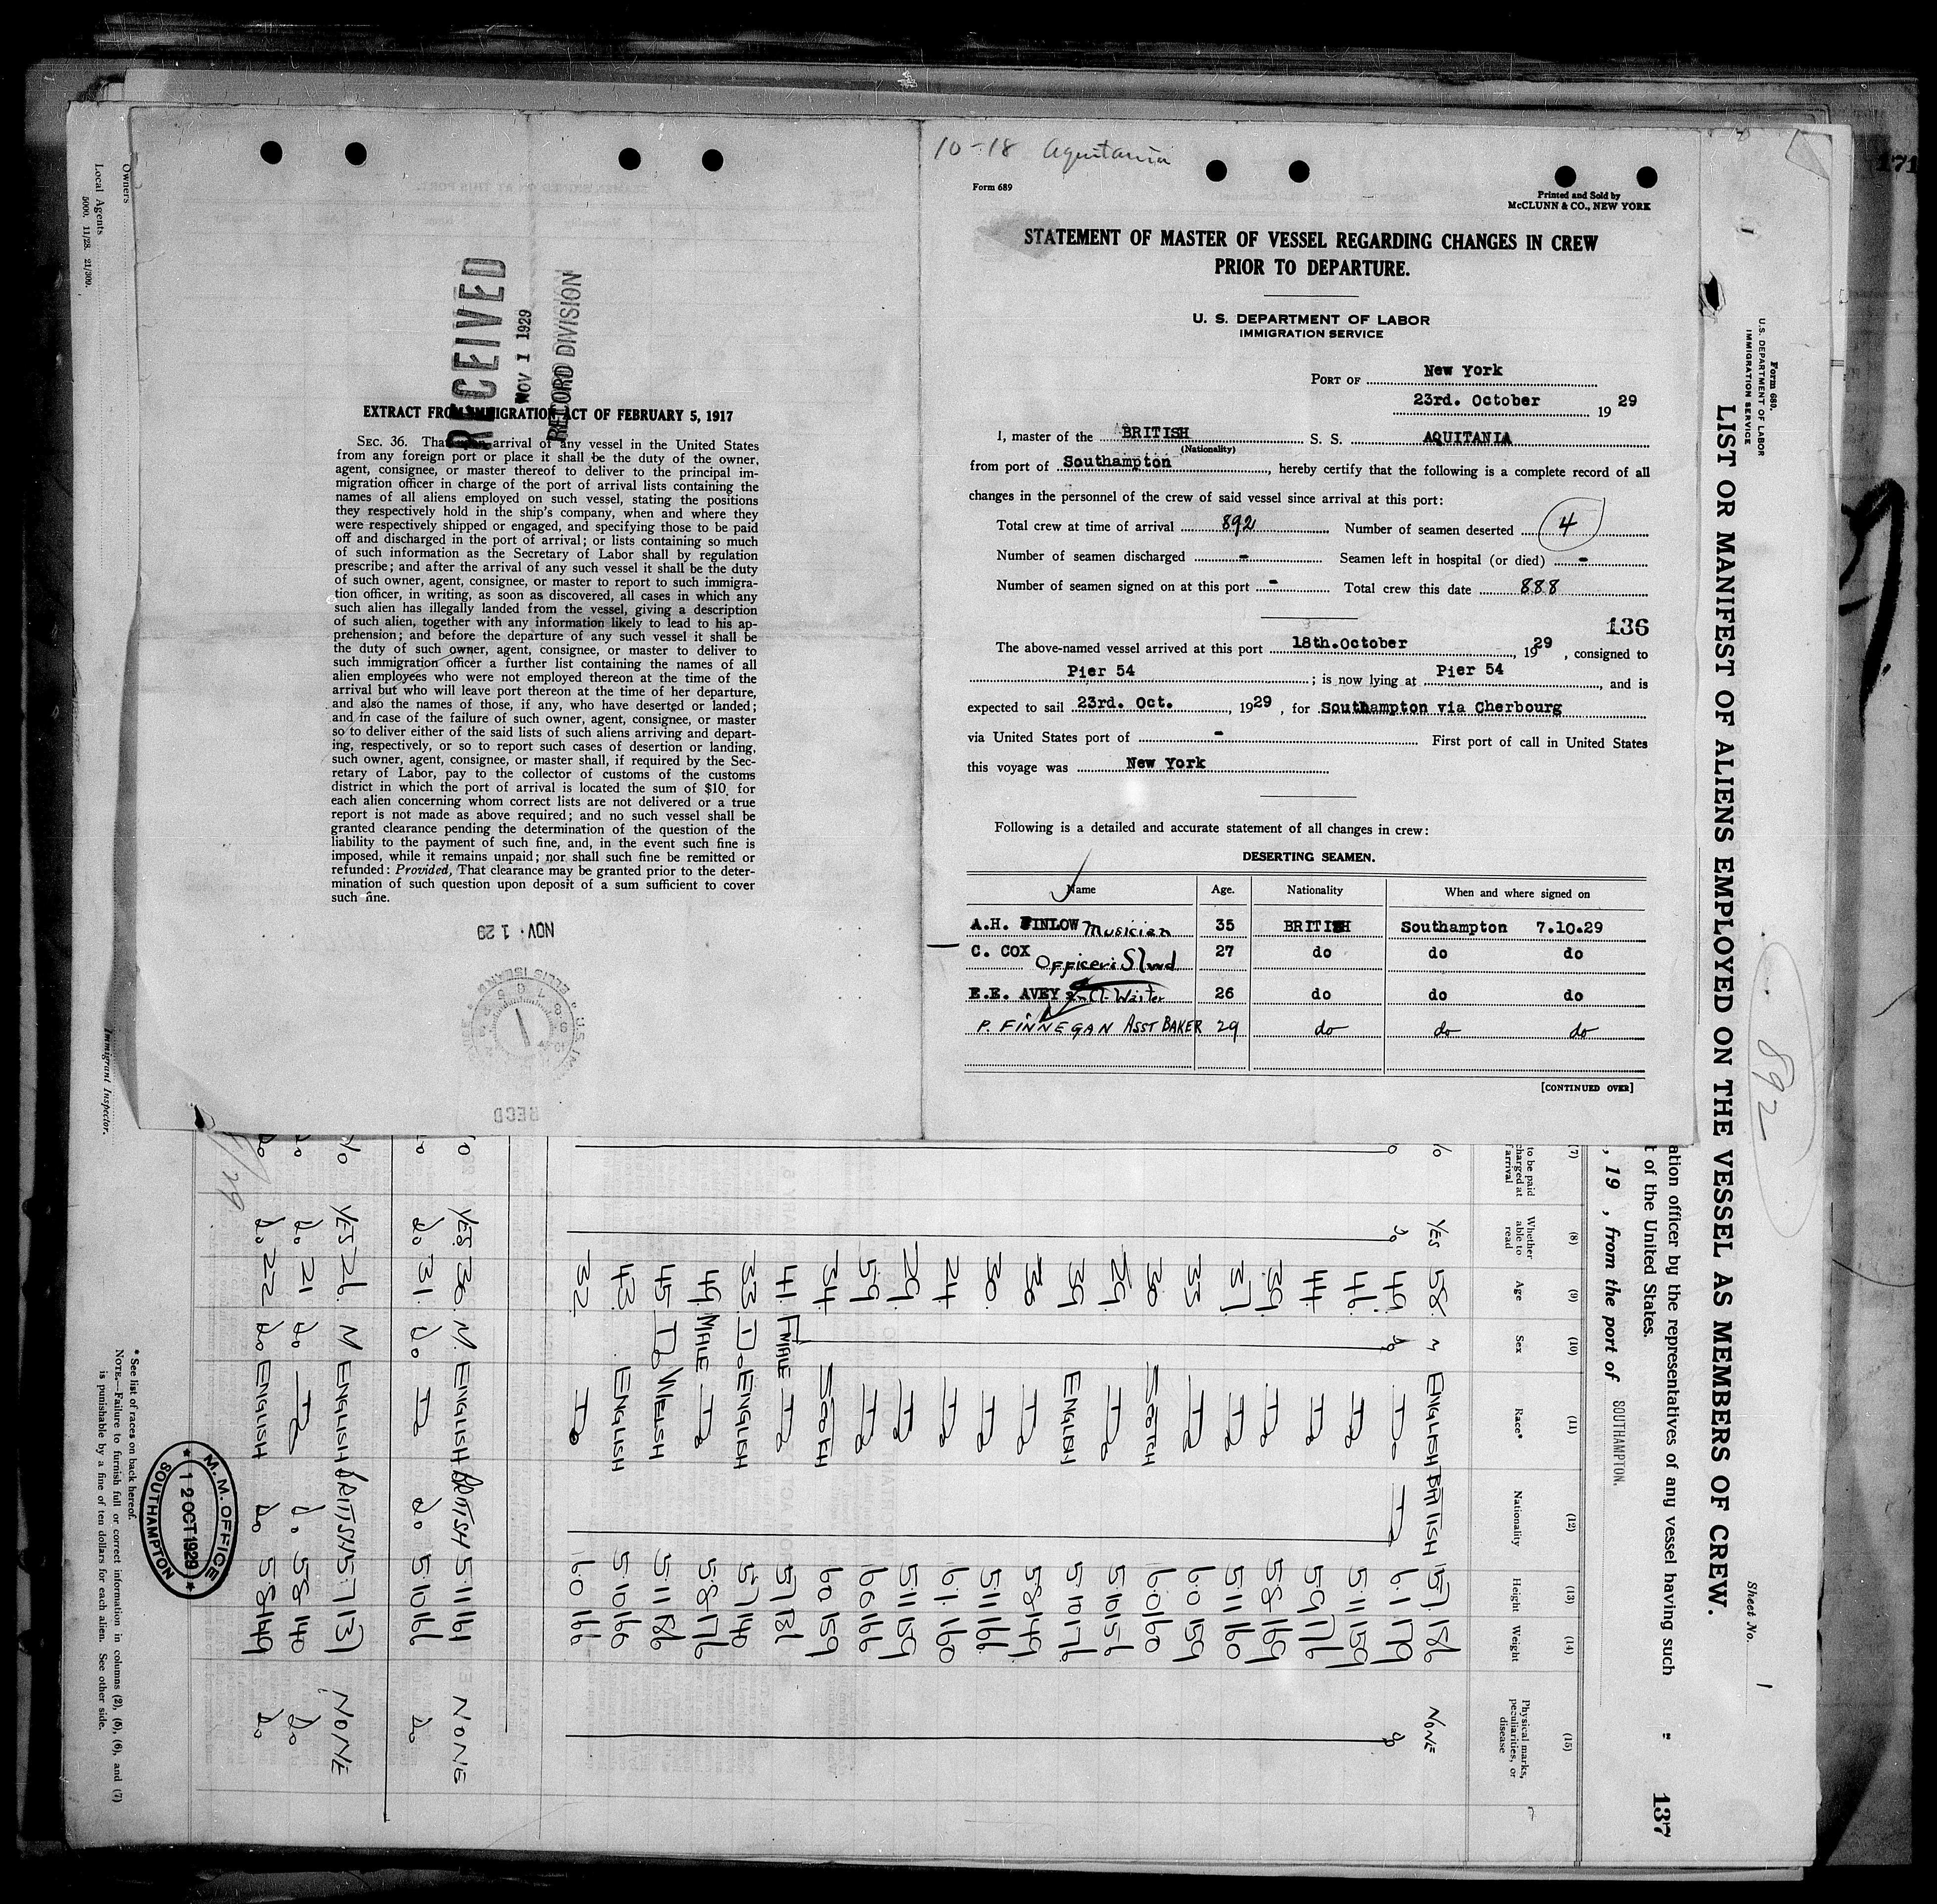 10-18 Aquitania
Form 689
Printed and Sold by
McCLUNN & CO., NEW YORK
STATEMENT OF MASTER OF VESSEL REGARDING CHANGES IN CREW
PRIOR TO DEPARTURE.
U. S. DEPARTMENT OF LABOR
IMMIGRATION SERVICE
PORT OF New York
23rd. October 1929
I, master of the BRITISH S. S. AQUITANIA
(Nationality)
from port of Southampton, hereby certify that the following is a complete record of all
changes in the personnel of the crew of said vessel since arrival at this port:
Total crew at time of arrival 892 Number of seamen deserted 4
Number of seamen discharged - Seamen left in hospital (or died) -
Number of seamen signed on at this port - Total crew this date 888
136
The above-named vessel arrived at this port 18th.October, 1929, consigned to
Pier 54; is now lying at Pier 54, and is
expected to sail 23rd. Oct., 1929, for Southampton via Cherbourg
via United States port of - First port of call in United States
this voyage was New York
Following is a detailed and accurate statement of all changes in crew:
DESERTING SEAMEN.
Name Age. Nationality When and where signed on
A.H. FINLOW Musician 35 BRITISH Southampton 7.10.29
C. COX Officers Stwd 27 do do do
E.E. AVEY Waiter 26 do do do
P. FINNEGAN ASST BAKER 29 do do do
[CONTINUED OVER]
RECEIVED
NOV 1 1929
RECORD DIVISION
EXTRACT FROM IMMIGRATION ACT OF FEBRUARY 5, 1917
SEC. 36. That upon arrival of any vessel in the United States
from any foreign port or place it shall be the duty of the owner,
agent, consignee, or master thereof to deliver to the principal im-
migration officer in charge of the port of arrival lists containing the
names of all aliens employed on such vessel, stating the positions
they respectively hold in the ship's company, when and where they
were respectively shipped or engaged, and specifying those to be paid
off and discharged in the port of arrival; or lists containing so much
of such information as the Secretary of Labor shall by regulation
prescribe; and after the arrival of any such vessel it shall be the duty
of such owner, agent, consignee, or master to report to such immigra-
tion officer, in writing, as soon as discovered, all cases in which any
such alien has illegally landed from the vessel, giving a description
of such alien, together with any information likely to lead to his ap-
prehension; and before the departure of any such vessel it shall be
the duty of such owner, agent, consignee, or master to deliver to
such immigration officer a further list containing the names of all
alien employees who were not employed thereon at the time of the
arrival but who will leave port thereon at the time of her departure,
and also the names of those, if any, who have deserted or landed;
and in case of the failure of such owner, agent, consignee, or master
so to deliver either of the said lists of such aliens arriving and depart-
ing, respectively, or so to report such cases of desertion or landing,
such owner, agent, consignee, or master shall, if required by the Sec-
retary of Labor, pay to the collector of customs of the customs
district in which the port of arrival is located the sum of $10 for
each alien concerning whom correct lists are not delivered or a true
report is not made as above required; and no such vessel shall be
granted clearance pending the determination of the question of the
liability to the payment of such fine, and, in the event such fine is
imposed, while it remains unpaid; nor shall such fine be remitted or
refunded: Provided, That clearance may be granted prior to the deter-
mination of such question upon deposit of a sum sufficient to cover
such fine.
NOV 1 29
RECD
171
Form 680.
U.S. DEPARTMENT OF LABOR
IMMIGRATION SERVICE
Sheet No. 1
892
LIST OR MANIFEST OF ALIENS EMPLOYED ON THE VESSEL AS MEMBERS OF CREW.
137
ation officer by the representatives of any vessel having such
t of the United States.
, 19 , from the port of SOUTHAMPTON.
(7) (8) (9) (10) (11) (12) (13) (14) (15)
to be paid charged at arrival
Whether able to read
Age
Sex
Race*
Nationality
Height
Weight
Physical marks, peculiarities, or disease
YES 58 M ENGLISH BRITISH 5.7 186 NONE
do 49 do Do Do 6.1 179 do
46 Do 5.11 159
44 Do 5.9 176
39 Do 5.8 169
37 Do 5.11 160
33 Do 6.0 159
30 SCOTCH 6.0 160
29 Do 5.10 156
39 ENGLISH 5.10 176
30 Do 5.8 149
30 Do 5.11 166
24 Do 6.1 160
29 Do 5.11 159
59 Do 6.0 166
34 SCOTCH 6.0 159
41 FMALE Do 5.7 131
33 Do ENGLISH 5.7 140
49 MALE Do 5.8 176
45 Do WELSH 5.11 186
43 ENGLISH 5.10 166
32 Do 6.0 166
YES 30 M. ENGLISH BRITISH 5.11 161 NONE
do 31 do Do do 5.10 166 do
No YES 26 M ENGLISH BRITISH 5.7 137 NONE
do do 21 do Do do 5.8 140 do
do do 22 do ENGLISH do 5.8 149 do
M. M. OFFICE
12 OCT 1929
SOUTHAMPTON
* See list of races on back hereof.
NOTE.—Failure to furnish full or correct information in columns (2), (5), (6), and (7)
is punishable by a fine of ten dollars for each alien. See other side.
Owners
Local Agents
5000. 11/28. 21/309.
Immigrant Inspector.